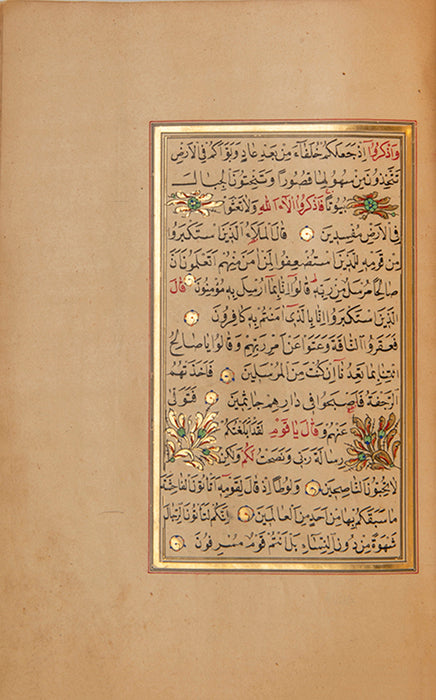 وَاذْكُرُوا اِذْ جَعَلَكُمْ خُلَفَاءَ مِنْ بَعْدِ عَادٍ وَبَوَّاَكُمْ فِى الْاَرْضِ
تَتَّخِذُونَ مِنْ سُهُولِهَا قُصُورًا وَتَنْحِتُونَ الْجِبَالَ
بُيُوتًا فَاذْكُرُوا اٰلَاءَ اللّٰهِ وَلَا تَعْثَوْا
فِى الْاَرْضِ مُفْسِدِينَ قَالَ الْمَلَاُ الَّذِينَ اسْتَكْبَرُوا
مِنْ قَوْمِهِ لِلَّذِينَ اسْتُضْعِفُوا لِمَنْ اٰمَنَ مِنْهُمْ اَتَعْلَمُونَ اَنَّ
صَالِحًا مُرْسَلٌ مِنْ رَبِّهِ قَالُوا اِنَّا بِمَا اُرْسِلَ بِهِ مُؤْمِنُونَ قَالَ
الَّذِينَ اسْتَكْبَرُوا اِنَّا بِالَّذِى اٰمَنْتُمْ بِهِ كَافِرُونَ
فَعَقَرُوا النَّاقَةَ وَعَتَوْا عَنْ اَمْرِ رَبِّهِمْ وَقَالُوا يَاصَالِحُ
ائْتِنَا بِمَا تَعِدُنَا اِنْ كُنْتَ مِنَ الْمُرْسَلِينَ فَاَخَذَتْهُمُ
الرَّجْفَةُ فَاَصْبَحُوا فِى دَارِهِمْ جَاثِمِينَ فَتَوَلّٰى
عَنْهُمْ وَقَالَ يَاقَوْمِ لَقَدْ اَبْلَغْتُكُمْ
رِسَالَةَ رَبِّى وَنَصَحْتُ لَكُمْ وَلٰكِنْ
لَا تُحِبُّونَ النَّاصِحِينَ وَلُوطًا اِذْ قَالَ لِقَوْمِهِ اَتَاْتُونَ الْفَاحِشَةَ
مَا سَبَقَكُمْ بِهَا مِنْ اَحَدٍ مِنَ الْعَالَمِينَ اِنَّكُمْ لَتَاْتُونَ الرِّجَالَ
شَهْوَةً مِنْ دُونِ النِّسَاءِ بَلْ اَنْتُمْ قَوْمٌ مُسْرِفُونَ